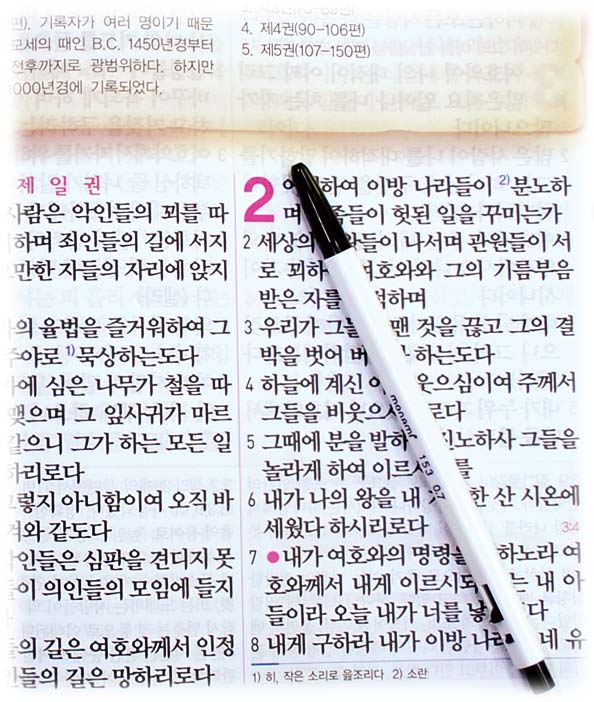 편). 기록자가 여러 명이기 때문
모세의 때인 B.C. 1450년경부터
전후까지로 광범위하다. 하지만
000년경에 기록되었다.
4. 제4권(90-106편)
5. 제5권(107-150편)
제 일 권
사람은 악인들의 꾀를 따
하며 죄인들의 길에 서지
만한 자들의 자리에 앉지
의 율법을 즐거워하여 그
주야로 1) 묵상하는도다
가에 심은 나무가 철을 따
맺으며 그 잎사귀가 마르
같으니 그가 하는 모든 일
하리로다
그렇지 아니함이여 오직 바
겨와 같도다
악인들은 심판을 견디지 못
이 의인들의 모임에 들지
들의 길은 여호와께서 인정
인들의 길은 망하리로다
2 하여 이방 나라들이 2) 분노하
며 들이 헛된 일을 꾸미는가
2 세상의 들이 나서며 관원들이 서
로 꾀하 여호와와 그의 기름부음
받은 자를 하며
3 우리가 그들 맨 것을 끊고 그의 결
박을 벗어 버 하는도다
4 하늘에 계신 이 웃으심이여 주께서
그들을 비웃으시 로다
5 그때에 분을 발하 진노하사 그들을
놀라게 하여 이르시 를
6 내가 나의 왕을 내 한 산 시온에
세웠다 하시리로다
3:4
7 ●내가 여호와의 명령을 하노라 여
호와께서 내게 이르시되 는 내 아
들이라 오늘 내가 너를 낳 다
8 내게 구하라 내가 이방 나라 네 유
1) 히, 작은 소리로 읊조리다 2) 소란
monami 153 0.7